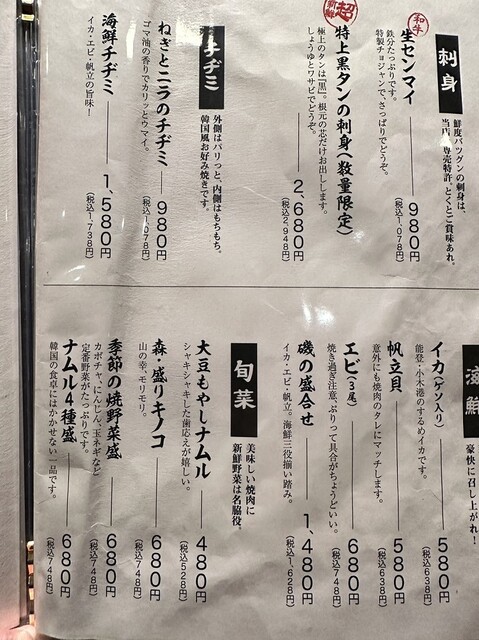 刺身
鮮度バツグンの刺身は、
当店の専売特許。とくとご賞味あれ。
和牛
生センマイ
980円
(税込1,078円)
鉄分たっぷりです。
特製チョジャンで、さっぱりでどうぞ。
超新鮮
特上黒タンの刺身(数量限定)
2,680円
(税込2,948円)
極上のタンは『黒』。根元の芯だけお出しします。
しょうゆとワサビでどうぞ。
チヂミ
外側はパリっと、内側はもちもち。
韓国風お好み焼きです。
ねぎとニラのチヂミ
980円
(税込1,078円)
ゴマ油の香りでカリッとウマイ。
海鮮チヂミ
1,580円
(税込1,738円)
イカ・エビ・帆立の旨味!
海鮮
豪快に召し上がれ!
イカ(ゲソ入り)
580円
(税込638円)
能登・小木港のするめイカです。
帆立貝
580円
(税込638円)
意外にも焼肉のタレにマッチします。
エビ(3尾)
680円
(税込748円)
焼き過ぎ注意、ぷりって具合がちょうどいい。
磯の盛合せ
1,480円
(税込1,628円)
イカ・エビ・帆立。海鮮三役揃い踏み。
旬菜
美味しい焼肉に
新鮮野菜は名脇役。
大豆もやしナムル
480円
(税込528円)
シャキシャキした歯応えが嬉しい。
森・盛りキノコ
680円
(税込748円)
山の幸、モリモリ。
季節の焼野菜盛
680円
(税込748円)
カボチャ、にんじん、玉ネギなど
定番野菜がたっぷりです。
ナムル4種盛
680円
(税込748円)
韓国の食卓にはかかせない一品です。